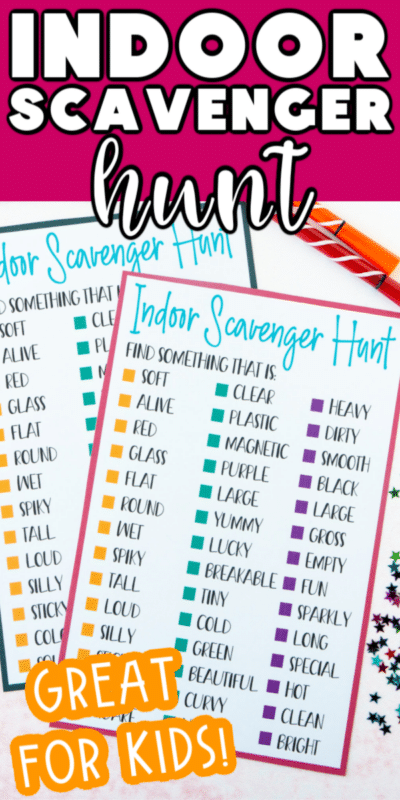 INDOOR
SCAVENGER
hunt
Indoor Scavenger Hunt
SOMETHING THAT
SOFT
ALIVE
RED
GLASS
FLAT
ROUND
WET
SPIKY
TALL
LOUD
SILLY
Indoor Scavenger Hunt
FIND SOMETHING THAT IS:
SOFT
ALIVE
RED
GLASS
FLAT
ROUND
WET
SPIKY
TALL
LOUD
SILLY
CLEAR
PLASTIC
MAGNETIC
PURPLE
LARGE
YUMMY
LUCKY
BREAKABLE
TINY
COLD
GREEN
BEAUTIFUL
CURVY
HEAVY
DIRTY
SMOOTH
BLACK
LARGE
GROSS
EMPTY
FUN
SPARKLY
LONG
SPECIAL
HOT
CLEAN
BRIGHT
GREAT
FOR KIDS!